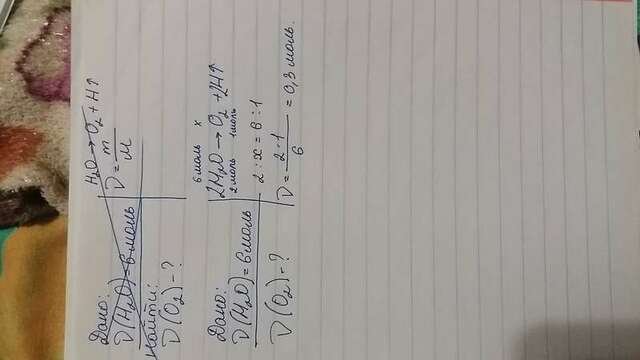 Дано:
D(H₂O)=6 моль
Найти:
D(O₂)-?
H₂O → O₂ + H↑
D = m/M
Дано:
D(H₂O)=6 моль
D(O₂)-?
6 моль x
2H₂O → O₂ + 2H↑
2 моль 1 моль
2 : x = 6 ÷ 1
D = 2·1/6 = 0,3 моль.